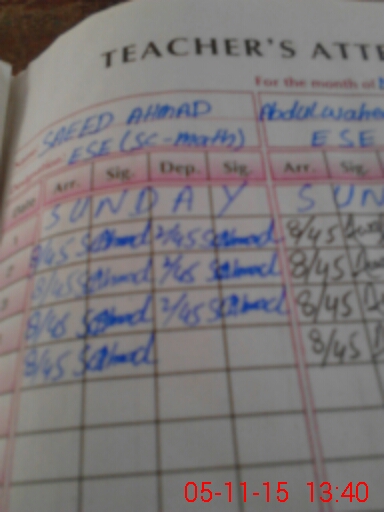 TEACHER'S ATTE
For the month of
SAEED AHMAD
ESE (SC-math) ESE
Arr. Sig. Dep. Sig. Arr. Sig.
SUNDAY SUN
1 8/45 SAhmad 2/45 SAhmad 8/45
2 8/45 SAhmad 2/45 SAhmad 8/45
3 8/45 SAhmad 2/45 SAhmad 8/45
8/45 SAhmad 8/45
05-11-15 13:40